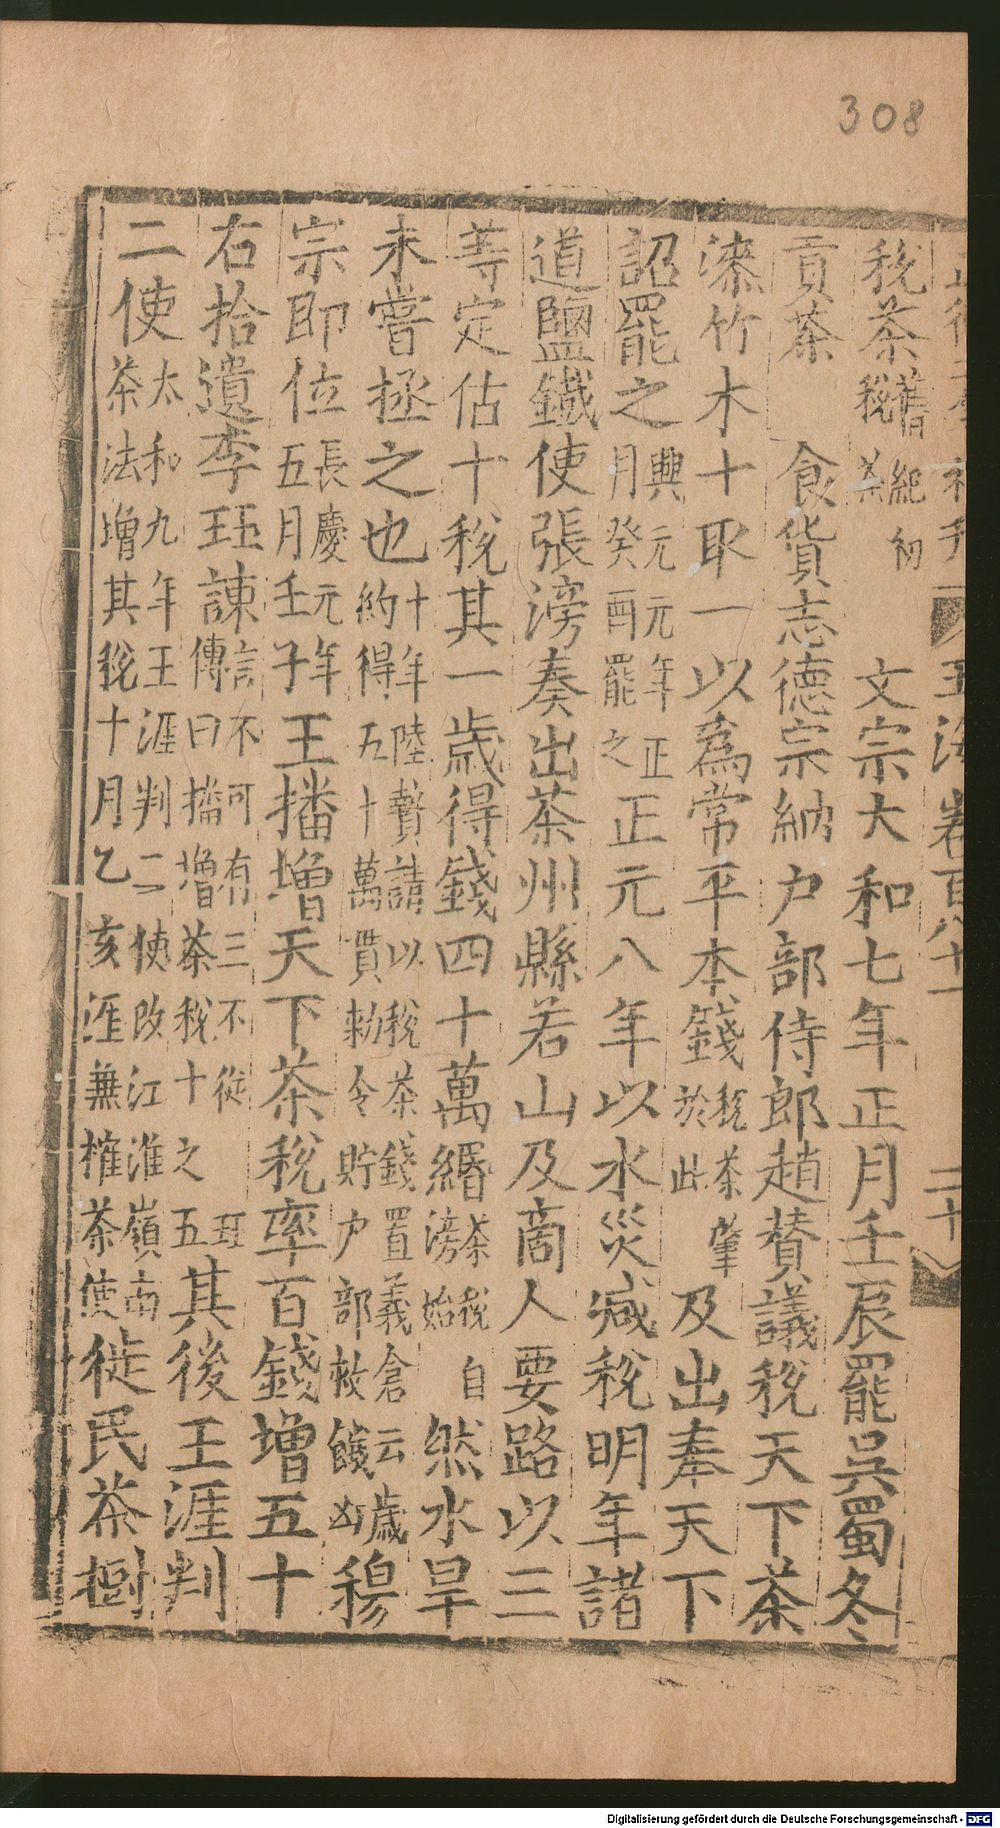 308
玉海 卷百八十一 二十
稅茶 舊紀初稅茶 文宗大和七年正月壬辰罷吳蜀冬
貢茶 食貨志德宗納户部侍郎趙賛議稅天下茶
漆竹木十取一以為常平本錢 稅茶肇於此 及出奉天下
詔罷之 興元元年正月癸酉罷之 正元八年以水災減稅明年諸
道鹽鐵使張滂奏出茶州縣若山及啇人要路以三
等定估十稅其一歲得錢四十萬緡 茶稅自滂始 然水旱
未嘗拯之也 十年陸贄請以稅茶錢置義倉云歲約得五十萬貫勑令貯户部救饑凶 穆
宗即位 長慶元年五月壬子 王播增天下茶稅率百錢增五十
右拾遺李珏諫 言不可有三不從 珏傳曰播增茶稅十之五 其後王涯判
二使 太和九年王涯判二使改江淮嶺南茶法增其稅十月乙亥涯兼榷茶使 徙民茶樹
Digitalisierung gefördert durch die Deutsche Forschungsgemeinschaft - DFG